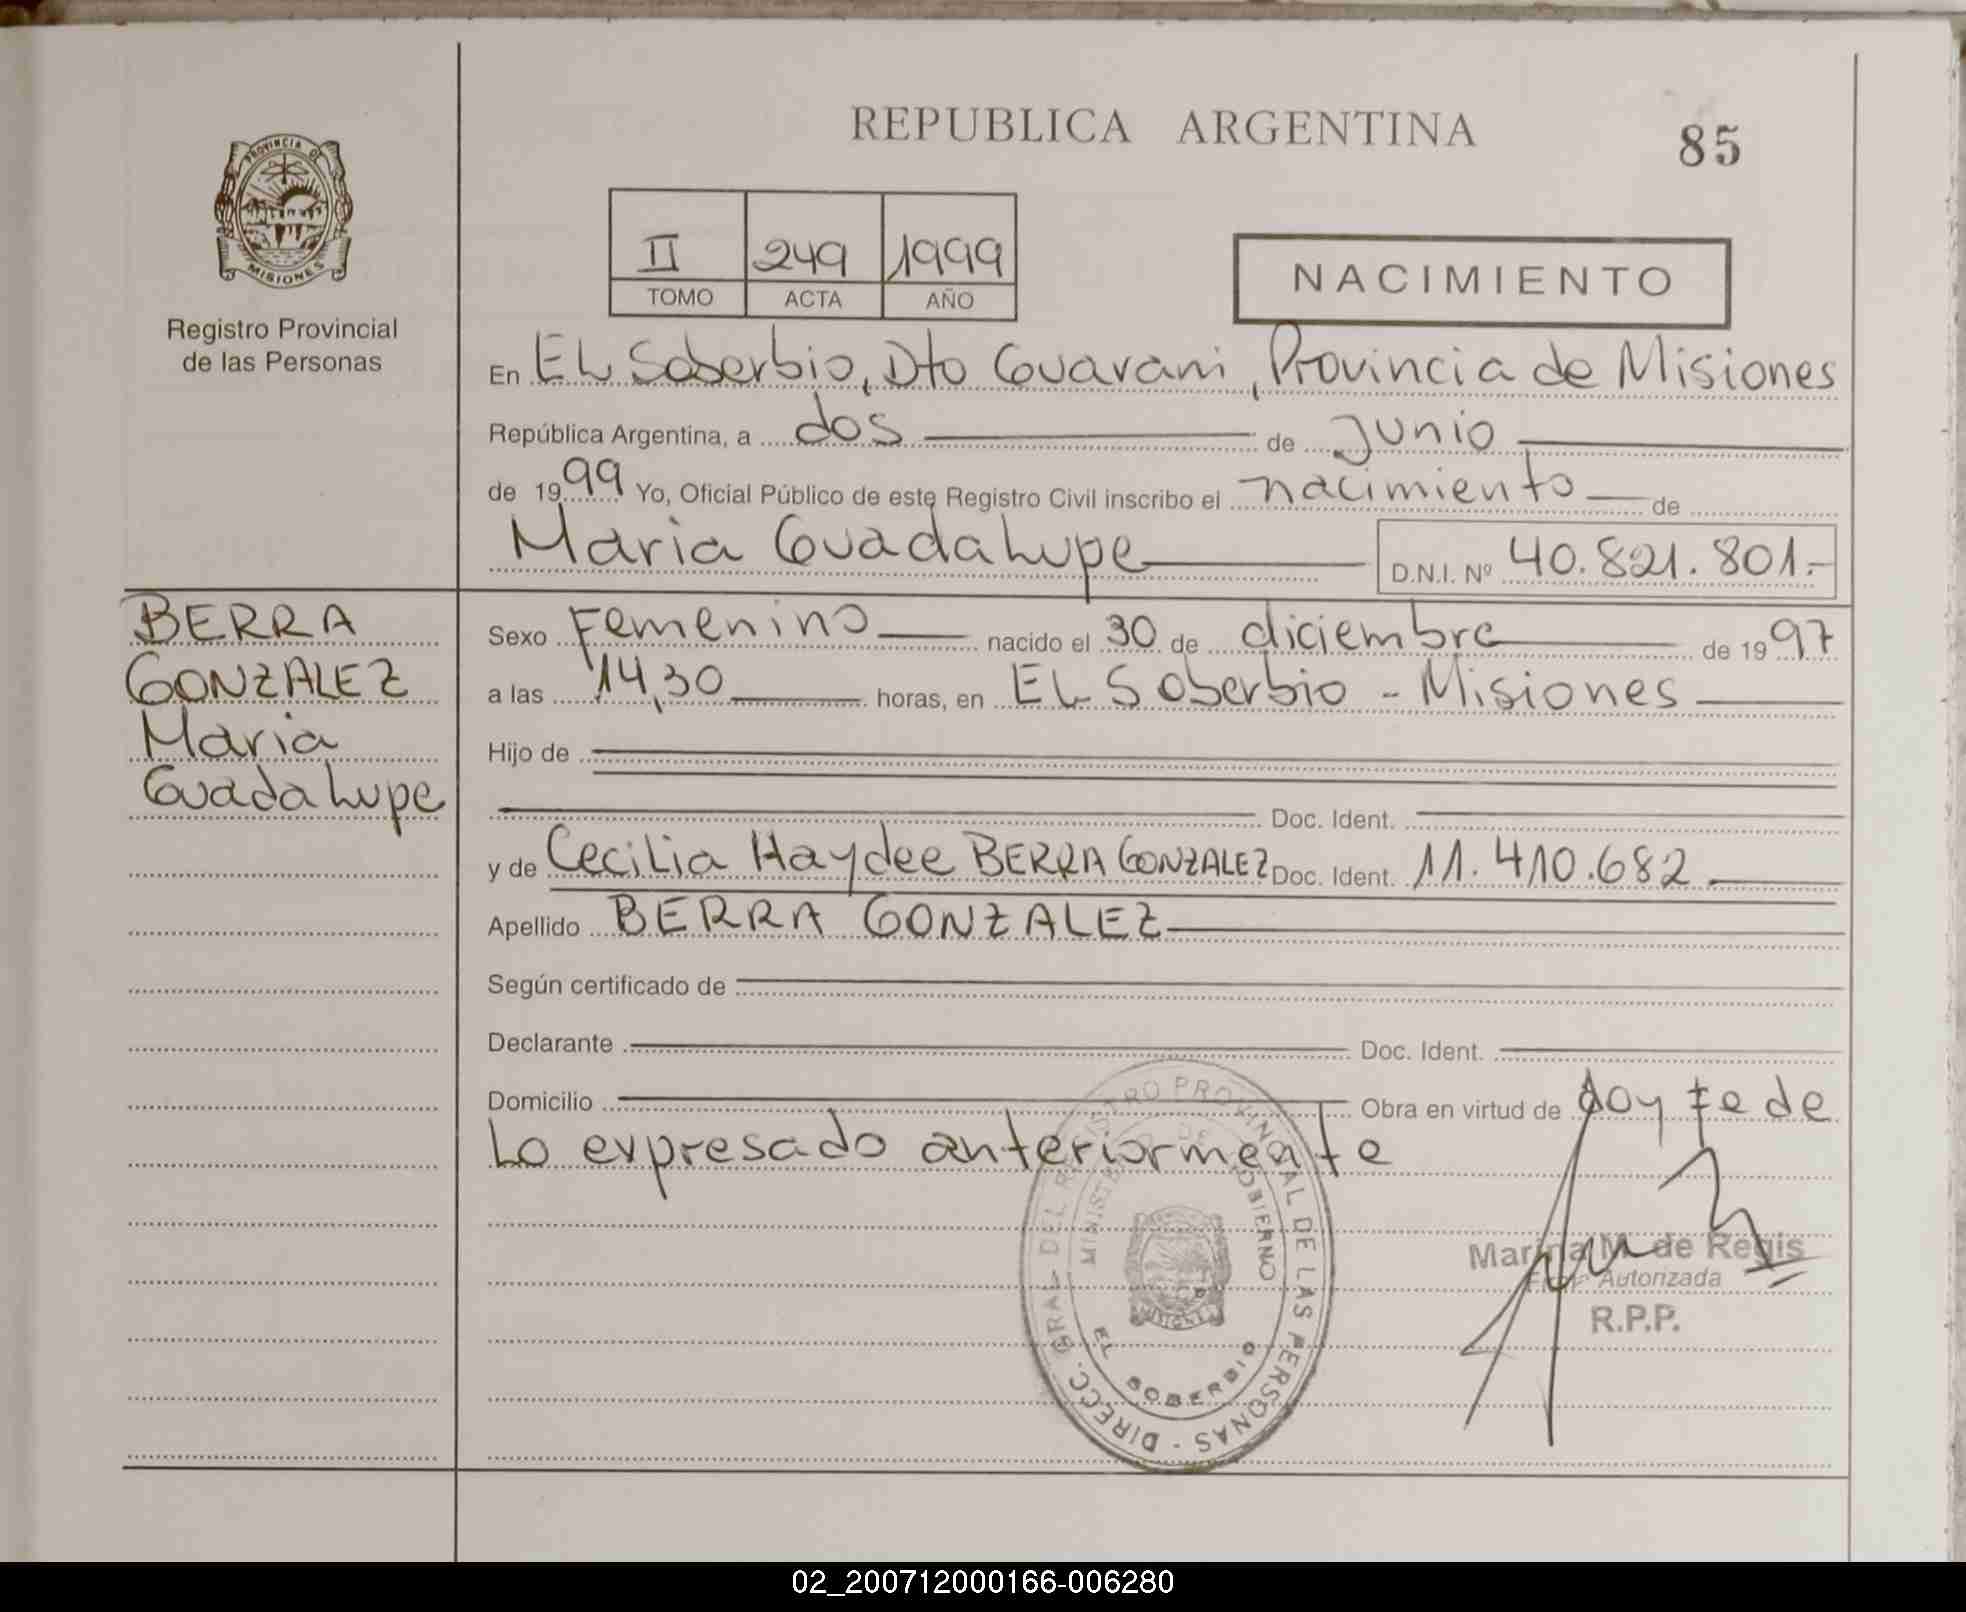 REPUBLICA ARGENTINA
85
PROVINCIA DE
MISIONES
Registro Provincial
de las Personas
II 249 1999
TOMO ACTA AÑO
NACIMIENTO
En EL Soberbio, Dto Guarani, Provincia de Misiones
República Argentina, a dos de Junio
de 1999 Yo, Oficial Público de este Registro Civil inscribo el nacimiento de
Maria Guadalupe D.N.I. Nº 40.821.801.-
BERRA
GONZALEZ
Maria
Guadalupe
Sexo Femenino nacido el 30 de diciembre de 1997
a las 14,30 horas, en EL Soberbio - Misiones
Hijo de
Doc. Ident.
y de Cecilia Haydee BERRA GONZALEZ Doc. Ident. 11.410.682
Apellido BERRA GONZALEZ
Según certificado de
Declarante Doc. Ident.
Domicilio Obra en virtud de doy fe de
Lo expresado anteriormente
DIRECC. GRAL. DEL REGISTRO PROVINCIAL DE LAS PERSONAS
MINISTERIO DE GOBIERNO
MISIONES
EL SOBERBIO
Marina M. de Regis
Firma Autorizada
R.P.P.
02_200712000166-006280